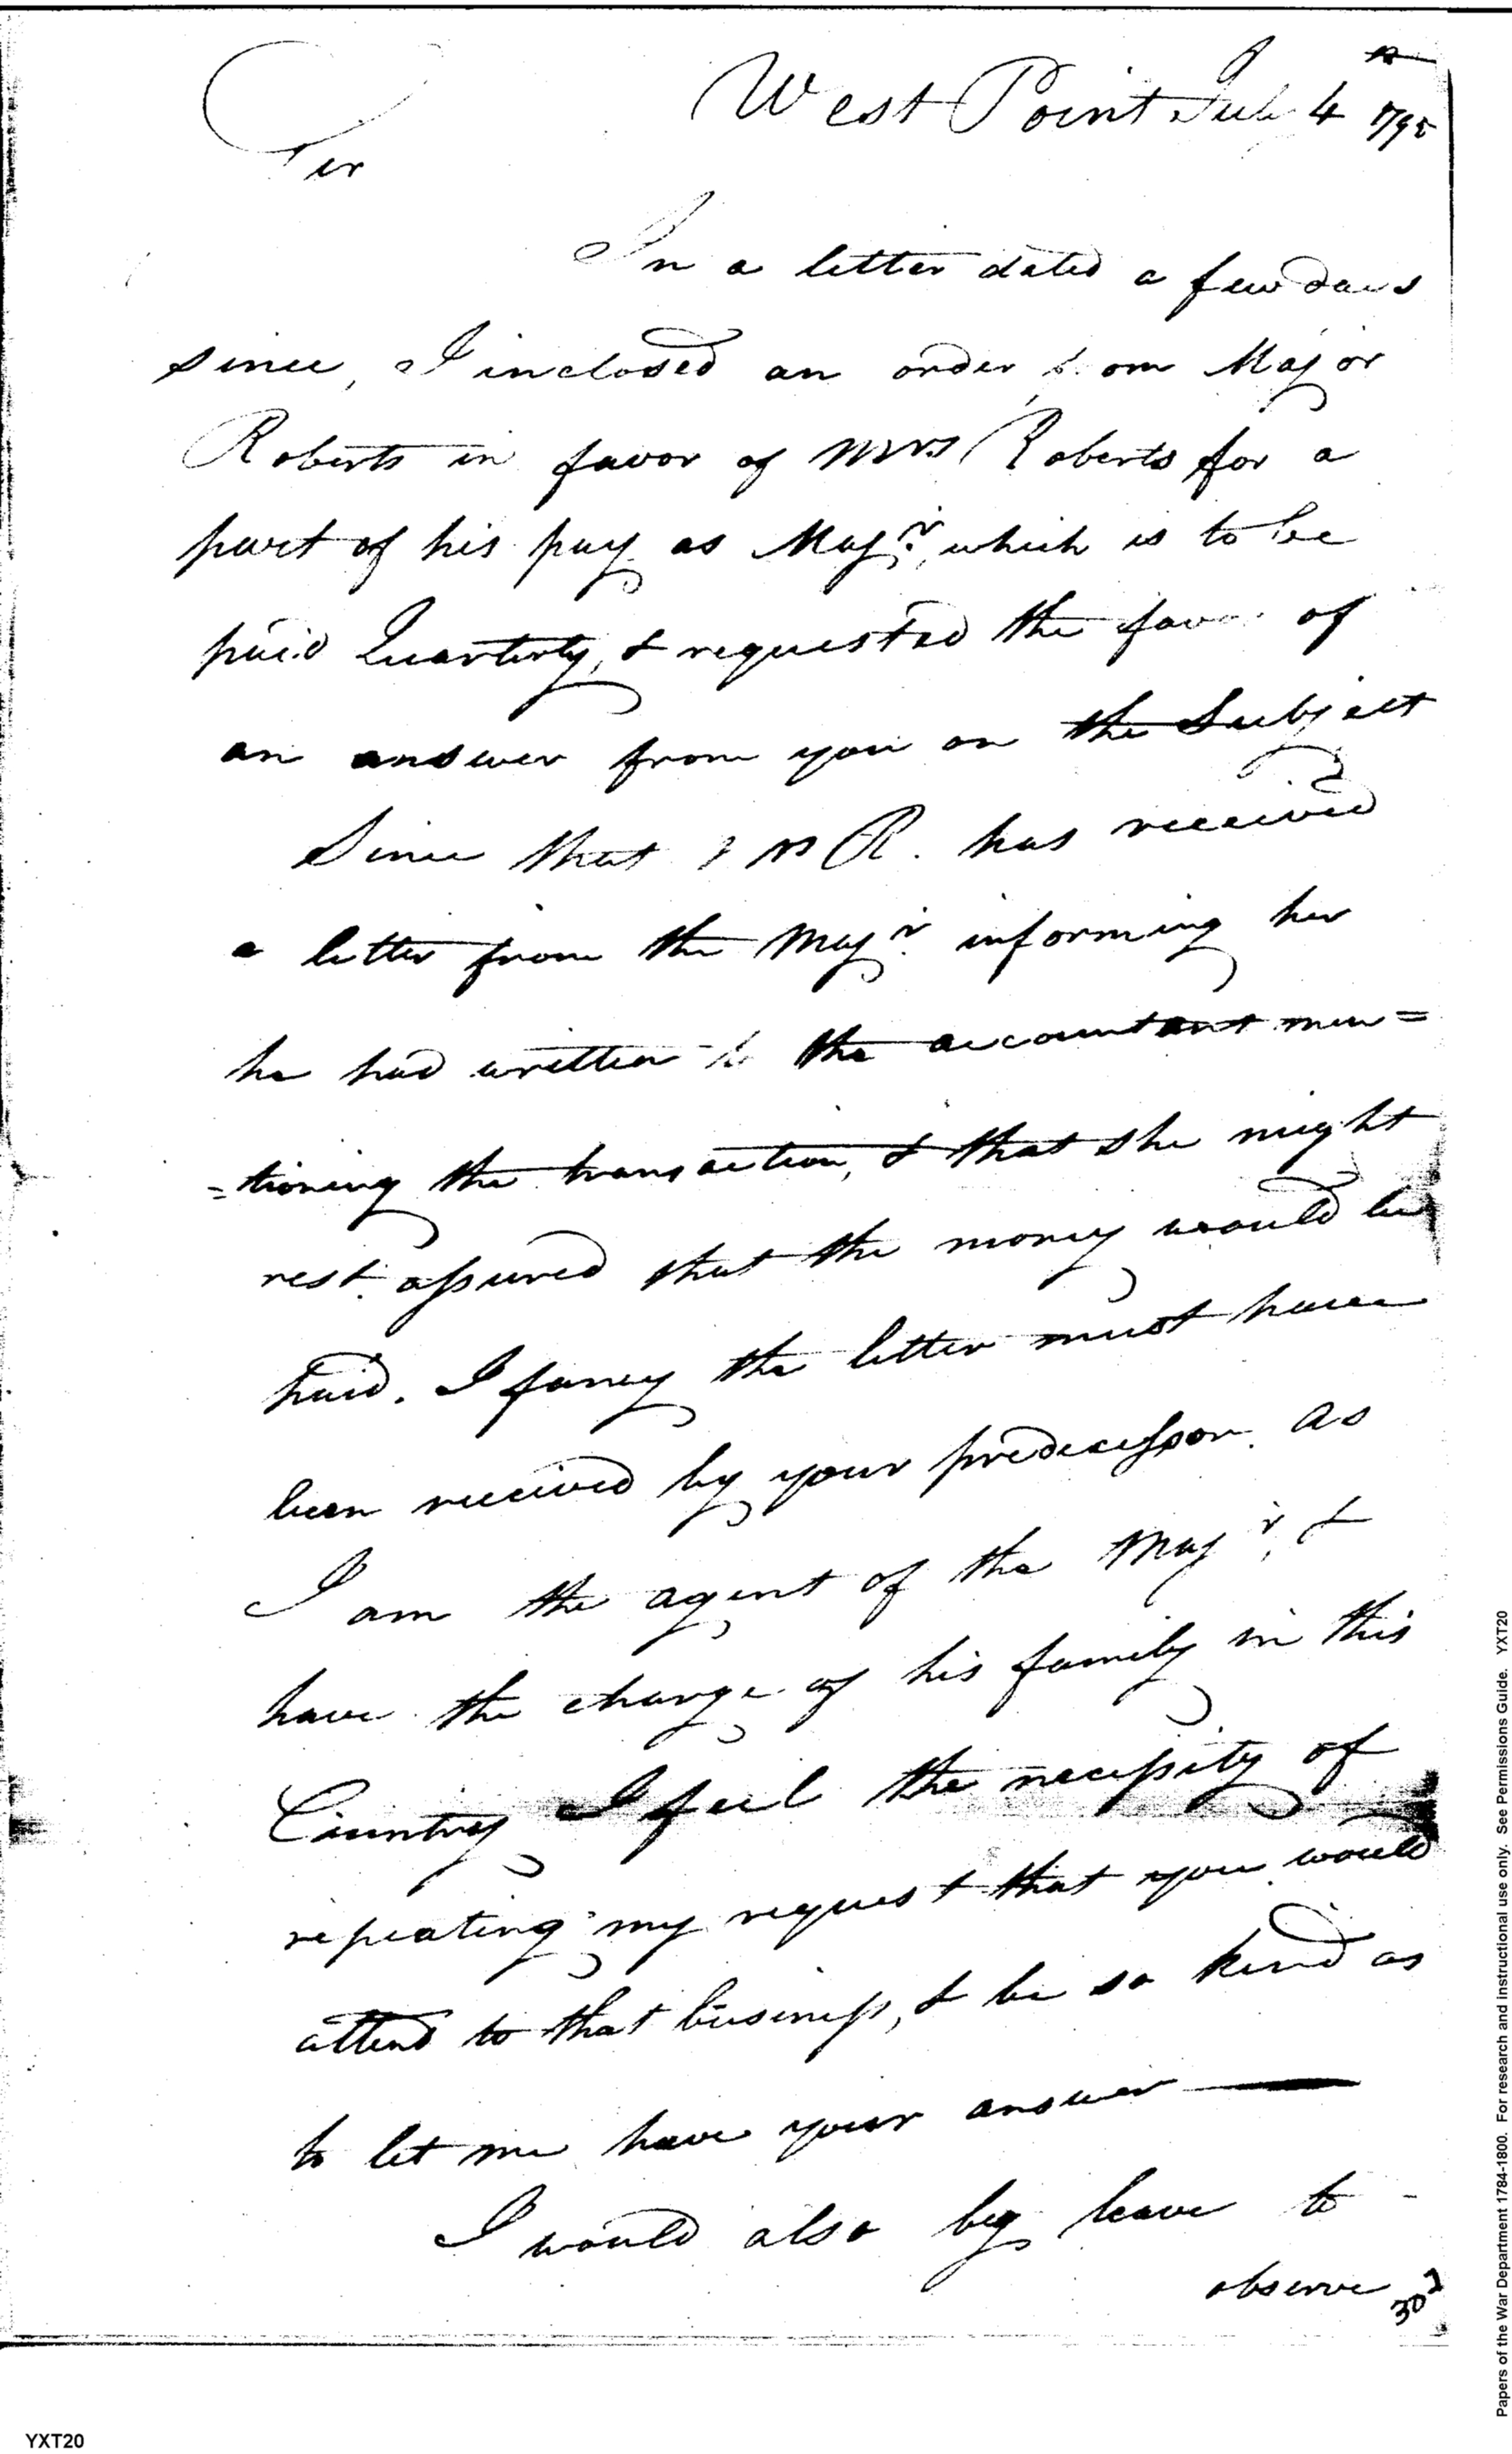 West Point July 4th 1795
Sir
In a letter dated a few days
since, I inclosed an order from Major
Roberts in favor of Mrs Roberts for a
part of his pay as Majr, which is to be
paid Quarterly, & requested the favor of
an answer from you on the Subject
Since that Mrs R. has received
a letter from the Majr informing her
he had written to the accountant men=
=tioning the transaction, & that she might
rest assured that the money would be
paid. I fancy the letter must have
been received by your predecessor. As
I am the agent of the Majr, &
have the charge of his family in this
Country I feel the necessity of
repeating my request that you would
attend to that business, & be so kind as
to let me have your answer —
I would also beg leave to -
observe
302
Papers of the War Department 1784-1800. For research and instructional use only. See Permissions Guide. YXT20
YXT20